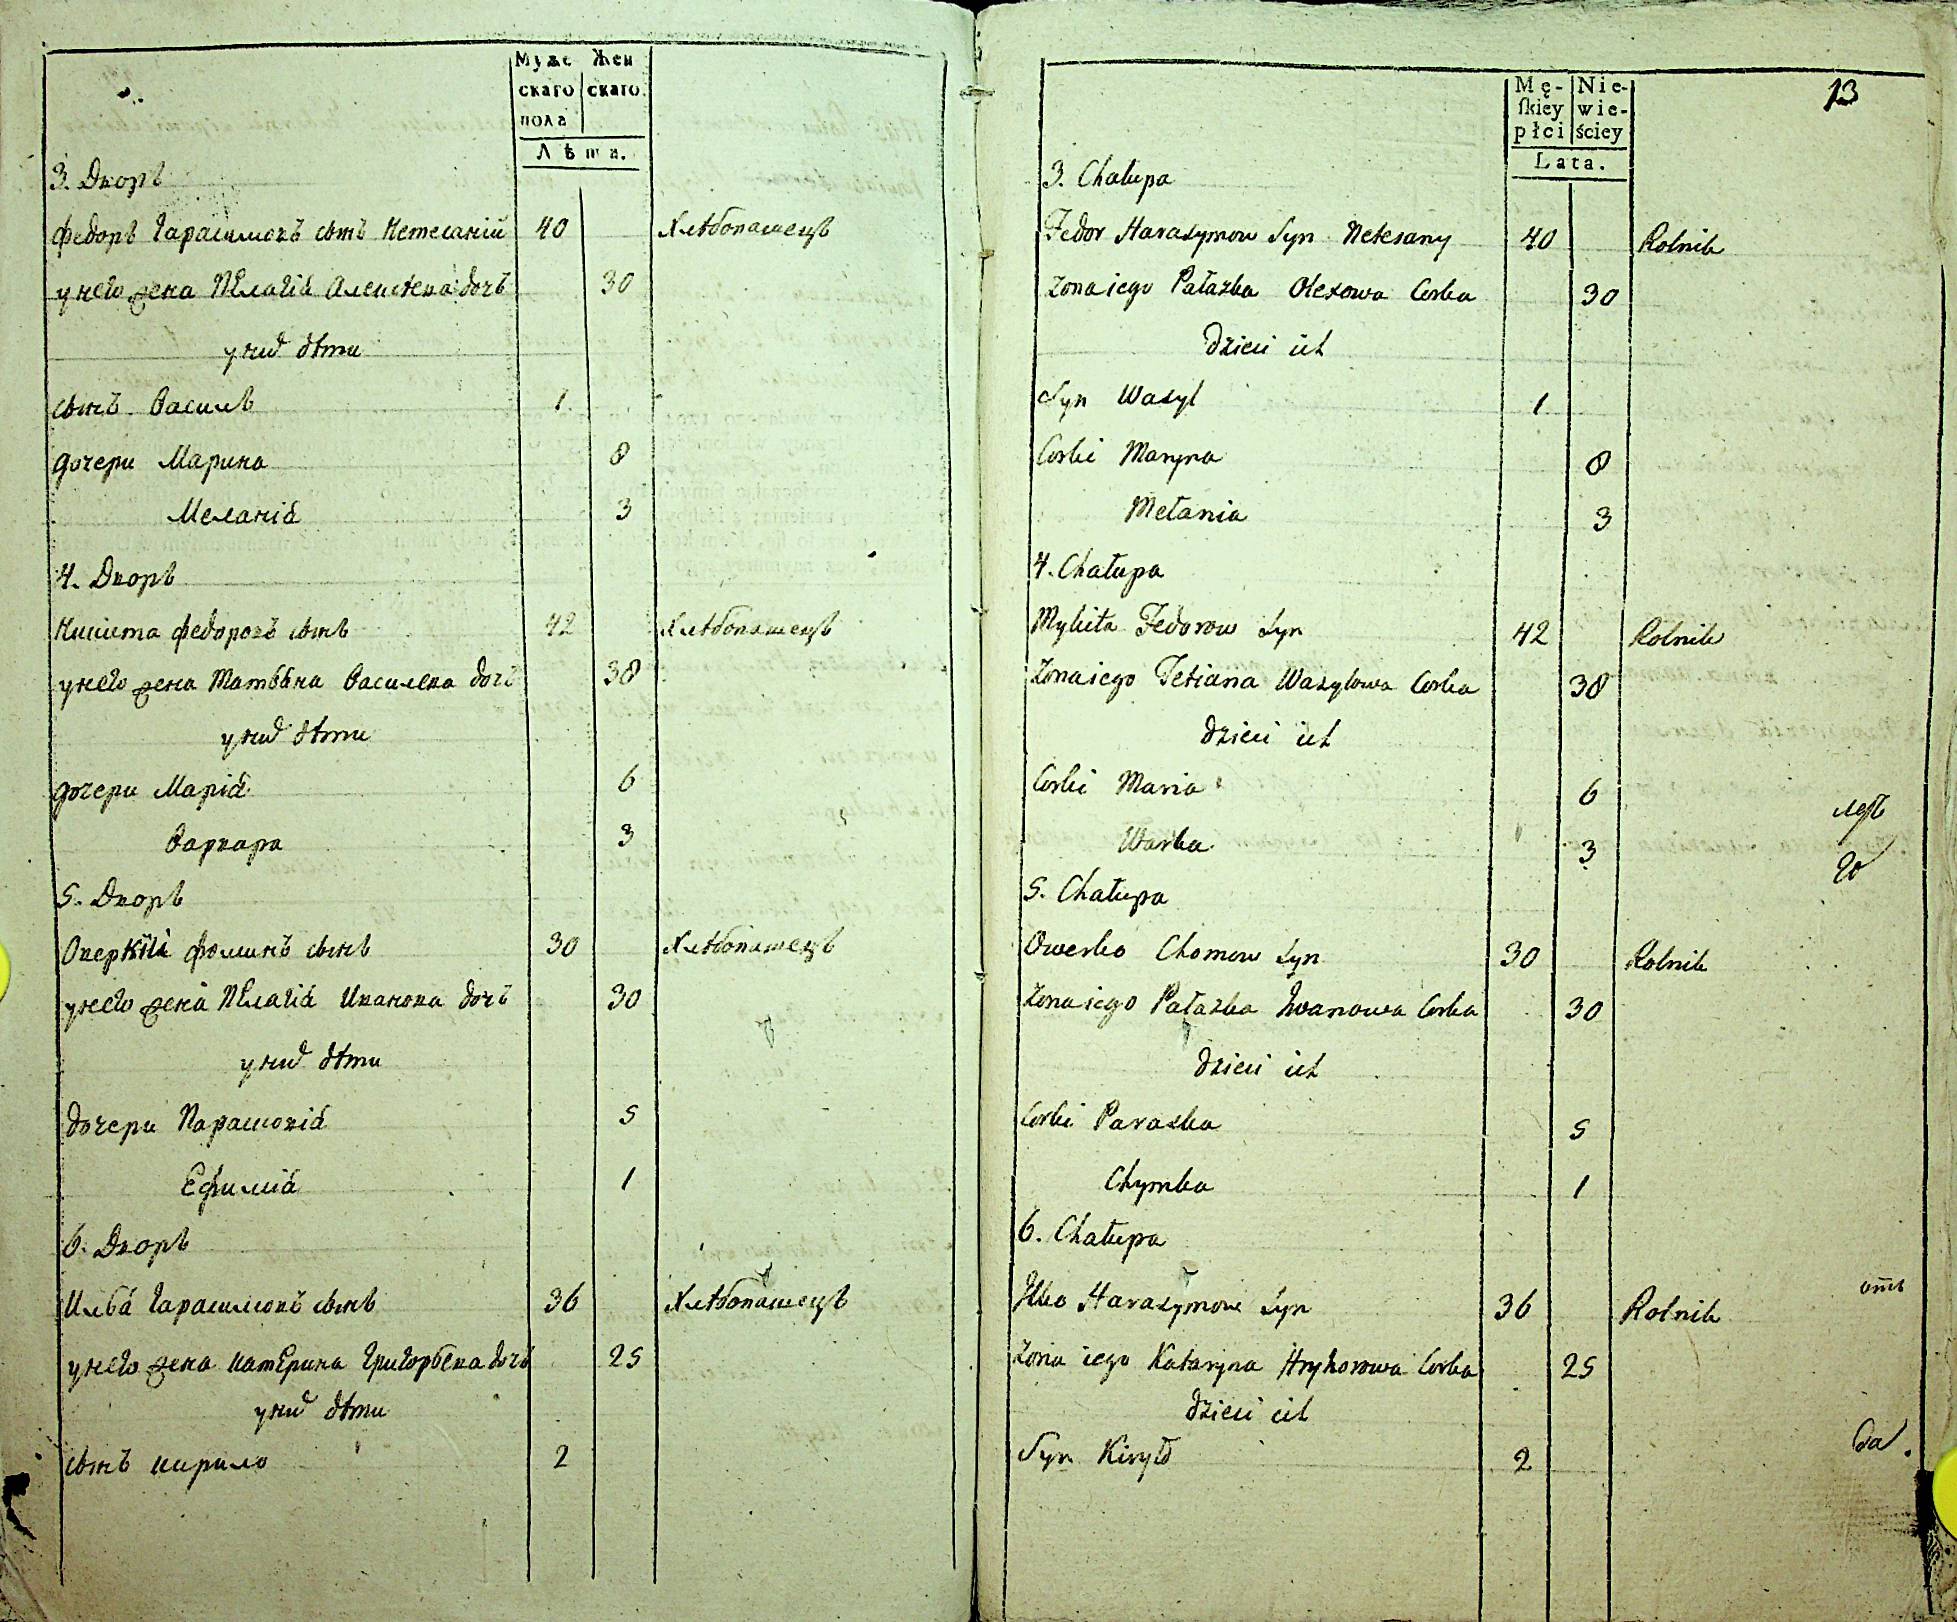 Муже Жен
скаго скаго.
пола
Лѣта.
3. Дворъ
Федоръ Гарасимовъ сынъ Нетесаній 40 Хлѣбопашецъ
у него жена Пелагіа Алексѣева дочь 30
у них дѣти
сынъ Василь 1
дочери Марина 8
Меланіа 3
4. Дворъ
Никита Федоровъ сынъ 42 Хлѣбопашецъ
у него жена Татьяна Васильева дочь 38
у них дѣти
дочери Маріа 6
Варвара 3
5. Дворъ
Оверкій Фоминъ сынъ 30 Хлѣбопашецъ
у него жена Пелагіа Иванова дочь 30
у них дѣти
дочери Парасковіа 5
Ефиміа 1
6. Дворъ
Илья Гарасимовъ сынъ 36 Хлѣбопашецъ
у него жена Катерина Григорьева дочь 25
у них дѣти
сынъ Кирило 2
13
Mę- Nie-
ſkiey wie-
płci ściey
Lata.
3. Chałupa
Fedor Harasymow Syn Netesany 40 Rolnik
Zona iego Pałazka Olexowa Corka 30
Dzieci ich
Syn Wasyl 1
Corki Maryna 8
Mełania 3
4. Chałupa
Mykita Fedorow Syn 42 Rolnik
Zona iego Tetiana Wasylowa Corka 38
Dzieci ich
Corki Maria 6
Warka 3
5. Chałupa
Owerko Chomow Syn 30 Rolnik
Zona iego Pałazka Iwanowa Corka 30
Dzieci ich
Corki Paraska 5
Chymka 1
6. Chałupa
Ilko Harasymow Syn 36 Rolnik
Zona iego Kataryna Hryhorowa Corka 25
Dzieci ich
Syn Kiryło 2